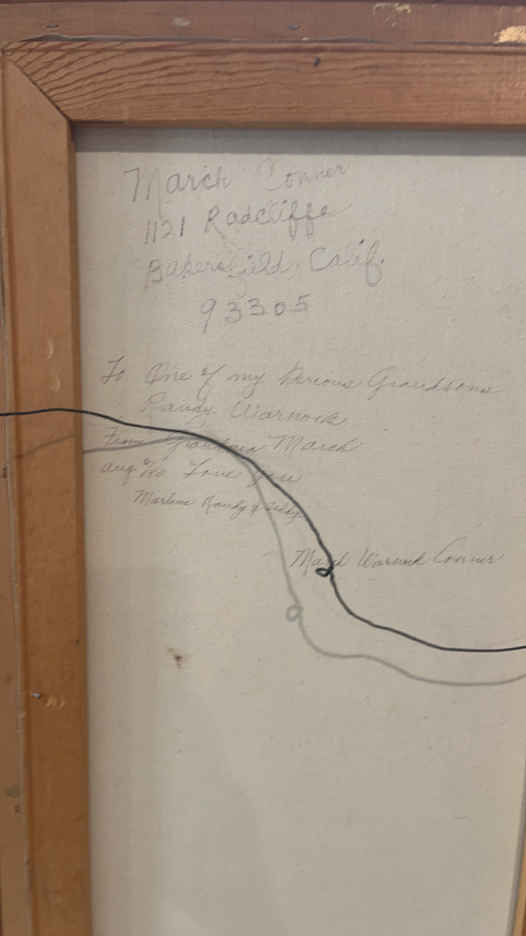 March Conner
1121 Radcliffe
Bakersfield, Calif.
93305
To One of my Grandsons
Randy Warnock
From Grandma March
Aug Love you
Randy &
March Warnock Conner